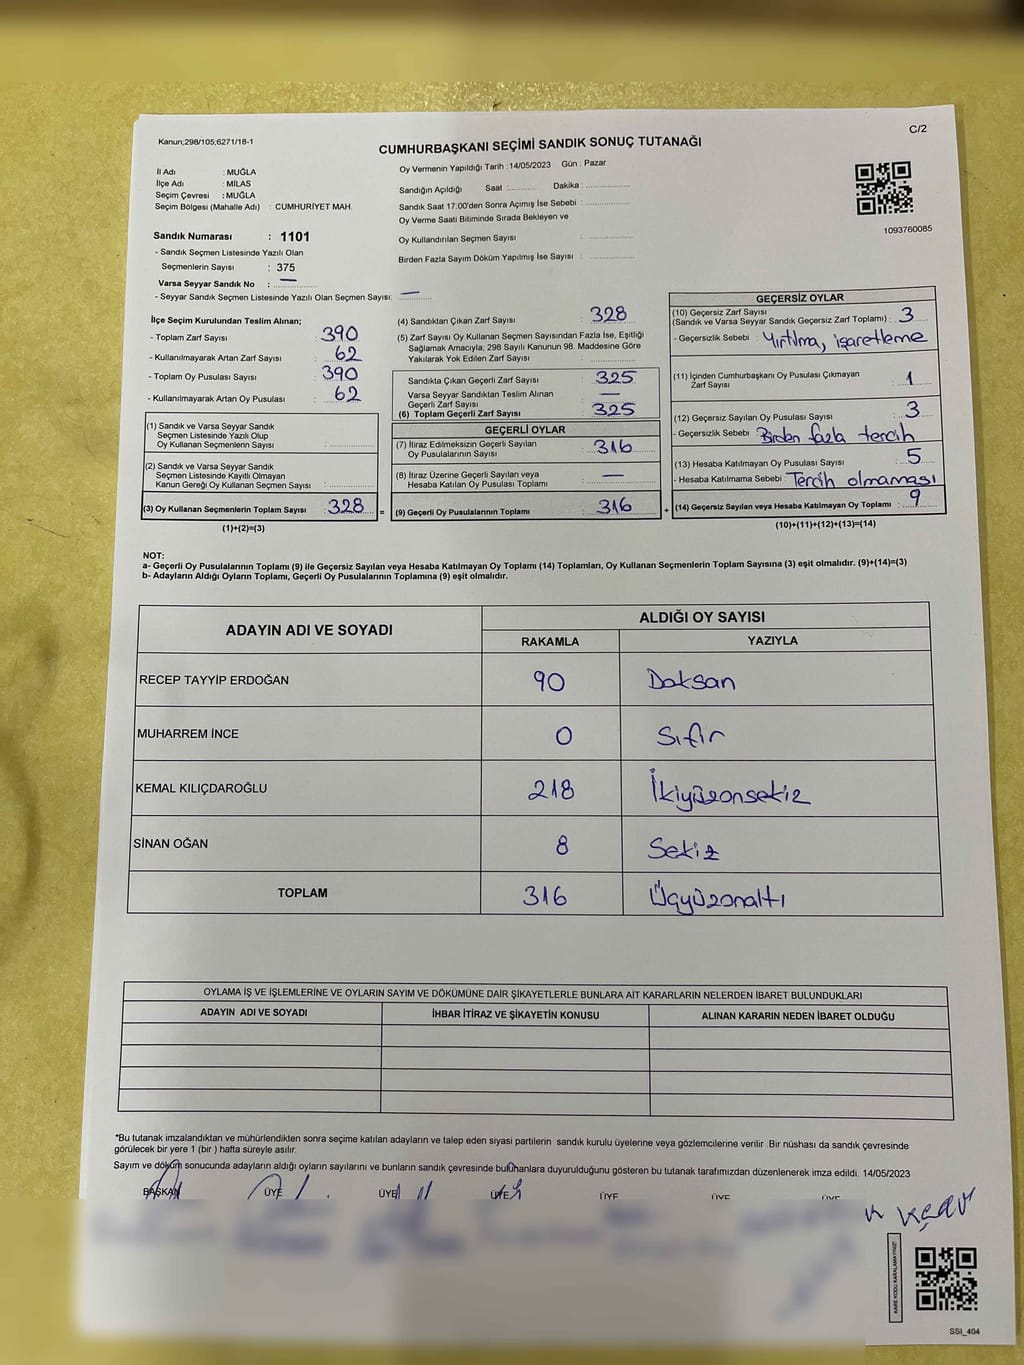 C/2
Kanun;298/105;6271/18-1
CUMHURBAŞKANI SEÇİMİ SANDIK SONUÇ TUTANAĞI
İl Adı : MUĞLA
İlçe Adı : MİLAS
Seçim Çevresi : MUĞLA
Seçim Bölgesi (Mahalle Adı) : CUMHURİYET MAH.
Sandık Numarası : 1101
- Sandık Seçmen Listesinde Yazılı Olan
Seçmenlerin Sayısı : 375
Varsa Seyyar Sandık No : —
- Seyyar Sandık Seçmen Listesinde Yazılı Olan Seçmen Sayısı: —
Oy Vermenin Yapıldığı Tarih : 14/05/2023 Gün : Pazar
Sandığın Açıldığı Saat :.......... Dakika : ..........
Sandık Saat 17.00'den Sonra Açımış İse Sebebi : ..........
Oy Verme Saati Bitiminde Sırada Bekleyen ve
Oy Kullandırılan Seçmen Sayısı : ..........
Birden Fazla Sayım Döküm Yapılmış İse Sayısı : ..........
1093760085
İlçe Seçim Kurulundan Teslim Alınan;
- Toplam Zarf Sayısı : 390
- Kullanılmayarak Artan Zarf Sayısı : 62
- Toplam Oy Pusulası Sayısı : 390
- Kullanılmayarak Artan Oy Pusulası : 62
(1) Sandık ve Varsa Seyyar Sandık
Seçmen Listesinde Yazılı Olup
Oy Kullanan Seçmenlerin Sayısı : ..........
(2) Sandık ve Varsa Seyyar Sandık
Seçmen Listesinde Kayıtlı Olmayan
Kanun Gereği Oy Kullanan Seçmen Sayısı : ..........
(3) Oy Kullanan Seçmenlerin Toplam Sayısı : 328 =
(1)+(2)=(3)
(4) Sandıktan Çıkan Zarf Sayısı : 328
(5) Zarf Sayısı Oy Kullanan Seçmen Sayısından Fazla İse, Eşitliği
Sağlamak Amacıyla; 298 Sayılı Kanunun 98. Maddesine Göre
Yakılarak Yok Edilen Zarf Sayısı : ..........
Sandıkta Çıkan Geçerli Zarf Sayısı : 325
Varsa Seyyar Sandıktan Teslim Alınan
Geçerli Zarf Sayısı : —
(6) Toplam Geçerli Zarf Sayısı : 325
GEÇERLİ OYLAR
(7) İtiraz Edilmeksizin Geçerli Sayılan
Oy Pusulalarının Sayısı : 316
(8) İtiraz Üzerine Geçerli Sayılan veya
Hesaba Katılan Oy Pusulası Toplamı : —
(9) Geçerli Oy Pusulalarının Toplamı : 316 +
GEÇERSİZ OYLAR
(10) Geçersiz Zarf Sayısı
(Sandık ve Varsa Seyyar Sandık Geçersiz Zarf Toplamı) : 3
- Geçersizlik Sebebi : Yırtılma, işaretleme
(11) İçinden Cumhurbaşkanı Oy Pusulası Çıkmayan
Zarf Sayısı : 1
(12) Geçersiz Sayılan Oy Pusulası Sayısı : 3
- Geçersizlik Sebebi : Birden fazla tercih
(13) Hesaba Katılmayan Oy Pusulası Sayısı : 5
- Hesaba Katılmama Sebebi : Tercih olmaması
(14) Geçersiz Sayılan veya Hesaba Katılmayan Oy Toplamı : 9
(10)+(11)+(12)+(13)=(14)
NOT:
a- Geçerli Oy Pusulalarının Toplamı (9) ile Geçersiz Sayılan veya Hesaba Katılmayan Oy Toplamı (14) Toplamları, Oy Kullanan Seçmenlerin Toplam Sayısına (3) eşit olmalıdır. (9)+(14)=(3)
b- Adayların Aldığı Oyların Toplamı, Geçerli Oy Pusulalarının Toplamına (9) eşit olmalıdır.
ADAYIN ADI VE SOYADI ALDIĞI OY SAYISI
RAKAMLA YAZIYLA
RECEP TAYYİP ERDOĞAN 90 Doksan
MUHARREM İNCE 0 Sıfır
KEMAL KILIÇDAROĞLU 218 İkiyüzonsekiz
SİNAN OĞAN 8 Sekiz
TOPLAM 316 Üçyüzonaltı
OYLAMA İŞ VE İŞLEMLERİNE VE OYLARIN SAYIM VE DÖKÜMÜNE DAİR ŞİKAYETLERLE BUNLARA AİT KARARLARIN NELERDEN İBARET BULUNDUKLARI
ADAYIN ADI VE SOYADI İHBAR İTİRAZ VE ŞİKAYETİN KONUSU ALINAN KARARIN NEDEN İBARET OLDUĞU
*Bu tutanak imzalandıktan ve mühürlendikten sonra seçime katılan adayların ve talep eden siyasi partilerin sandık kurulu üyelerine veya gözlemcilerine verilir .Bir nüshası da sandık çevresinde
görülecek bir yere 1 (bir ) hafta süreyle asılır.
Sayım ve döküm sonucunda adayların aldığı oyların sayılarını ve bunların sandık çevresinde bulunanlara duyurulduğunu gösteren bu tutanak tarafımızdan düzenlenerek imza edildi. 14/05/2023
BAŞKAN ÜYE ÜYE ÜYE ÜYE ÜYE ÜYE
KARE KODU KARALAMAYINIZ!
SSI_404